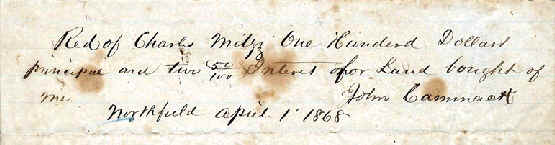 Recd of Charls Mitzg One Handerd Dollars
principae and two 50/100 Interest for Land bought of
me John Cammaert
Northfield april 1 1868